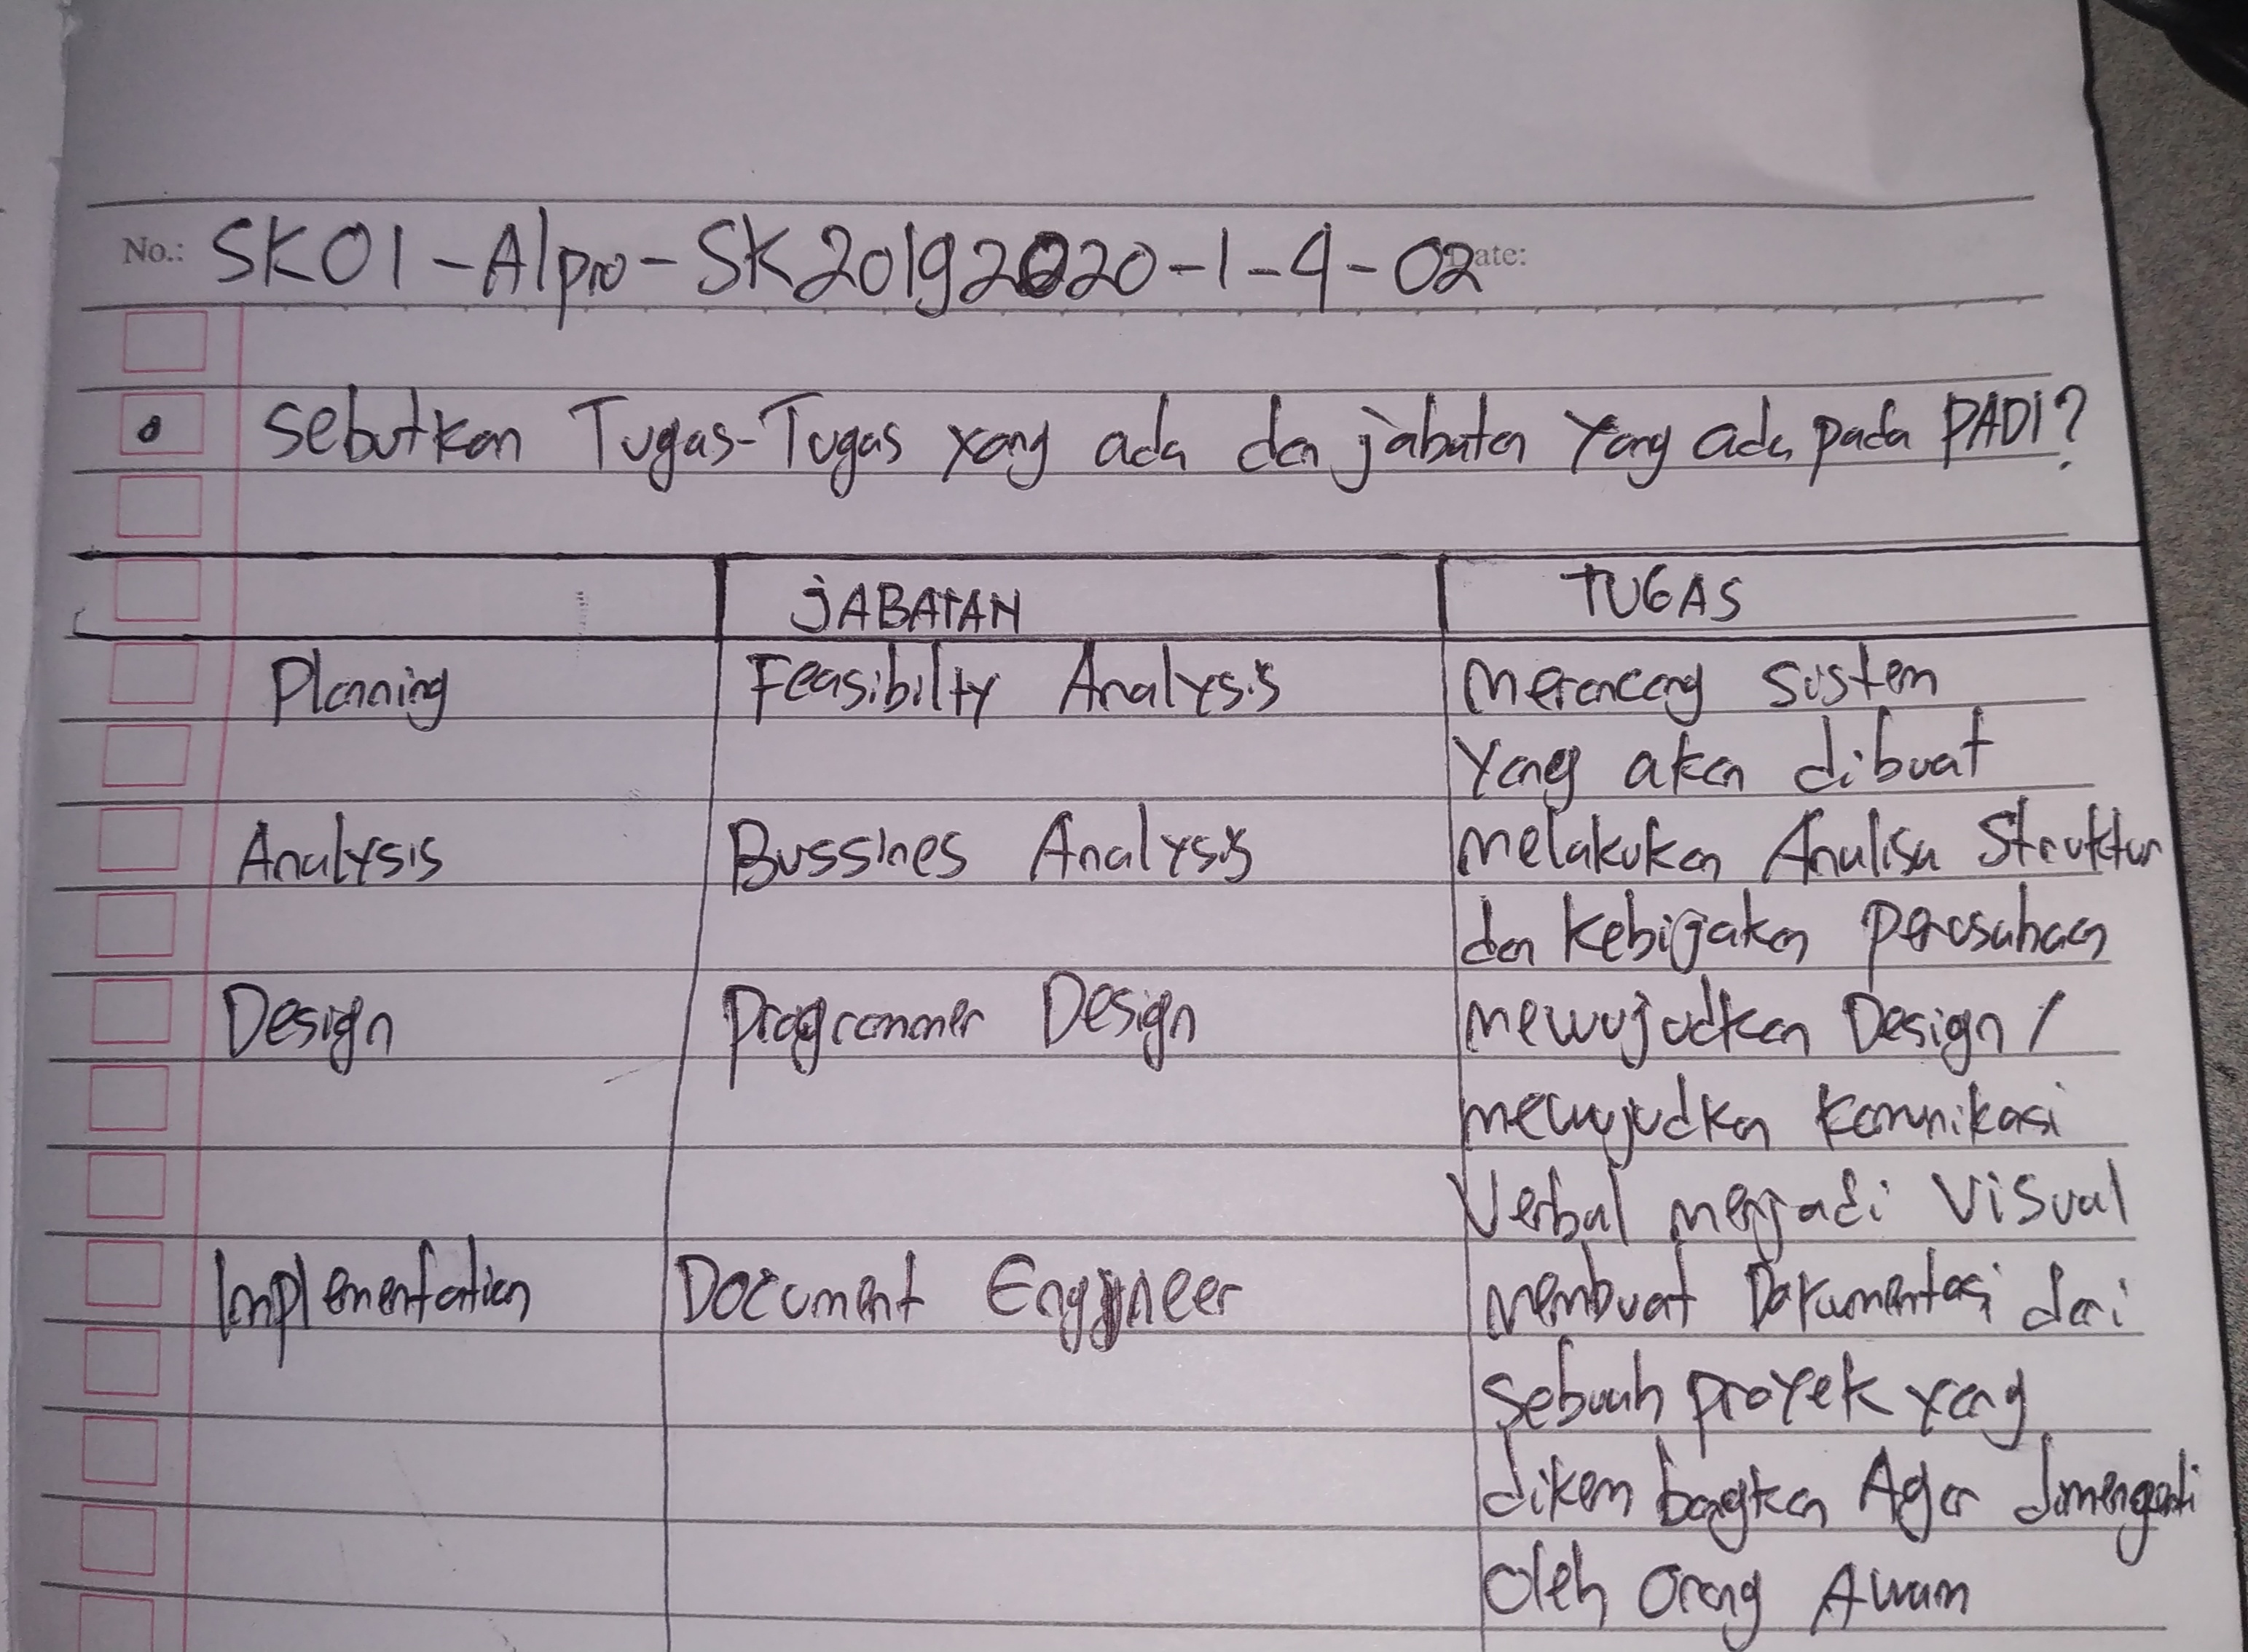 No.: SK01-Alpro-SK20192020-1-4-02 Date:
Sebutkan Tugas-Tugas yang ada dan jabatan Yang ada pada PADI?
JABATAN TUGAS
Planning Feasibilty Analysis merancang sistem
Yang akan dibuat
Analysis Bussines Analysis melakukan Analisa Struktur
dan kebijakan perusahaan
Design programmer Design mewujudkan Design /
mewujudkan komunikasi
Verbal menjadi Visual
Implementation Document Engineer membuat Dokumentasi dari
sebuah proyek yang
dikembangkan Agar dimengerti
oleh orang Awam